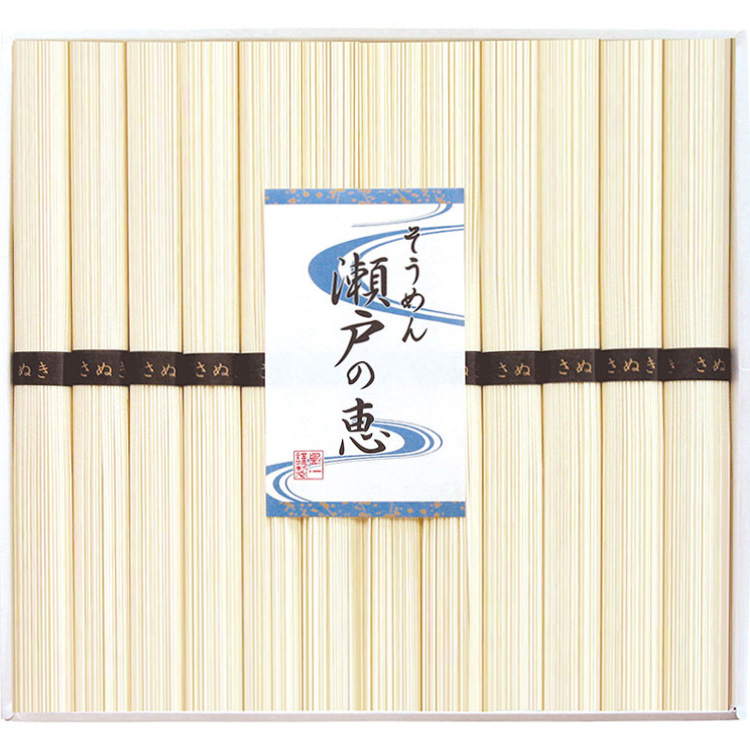 そうめん
瀬戸の恵
ぬき
さぬき
さぬ
さぬ
さ
ぬき
さぬ
さぬき
さぬ